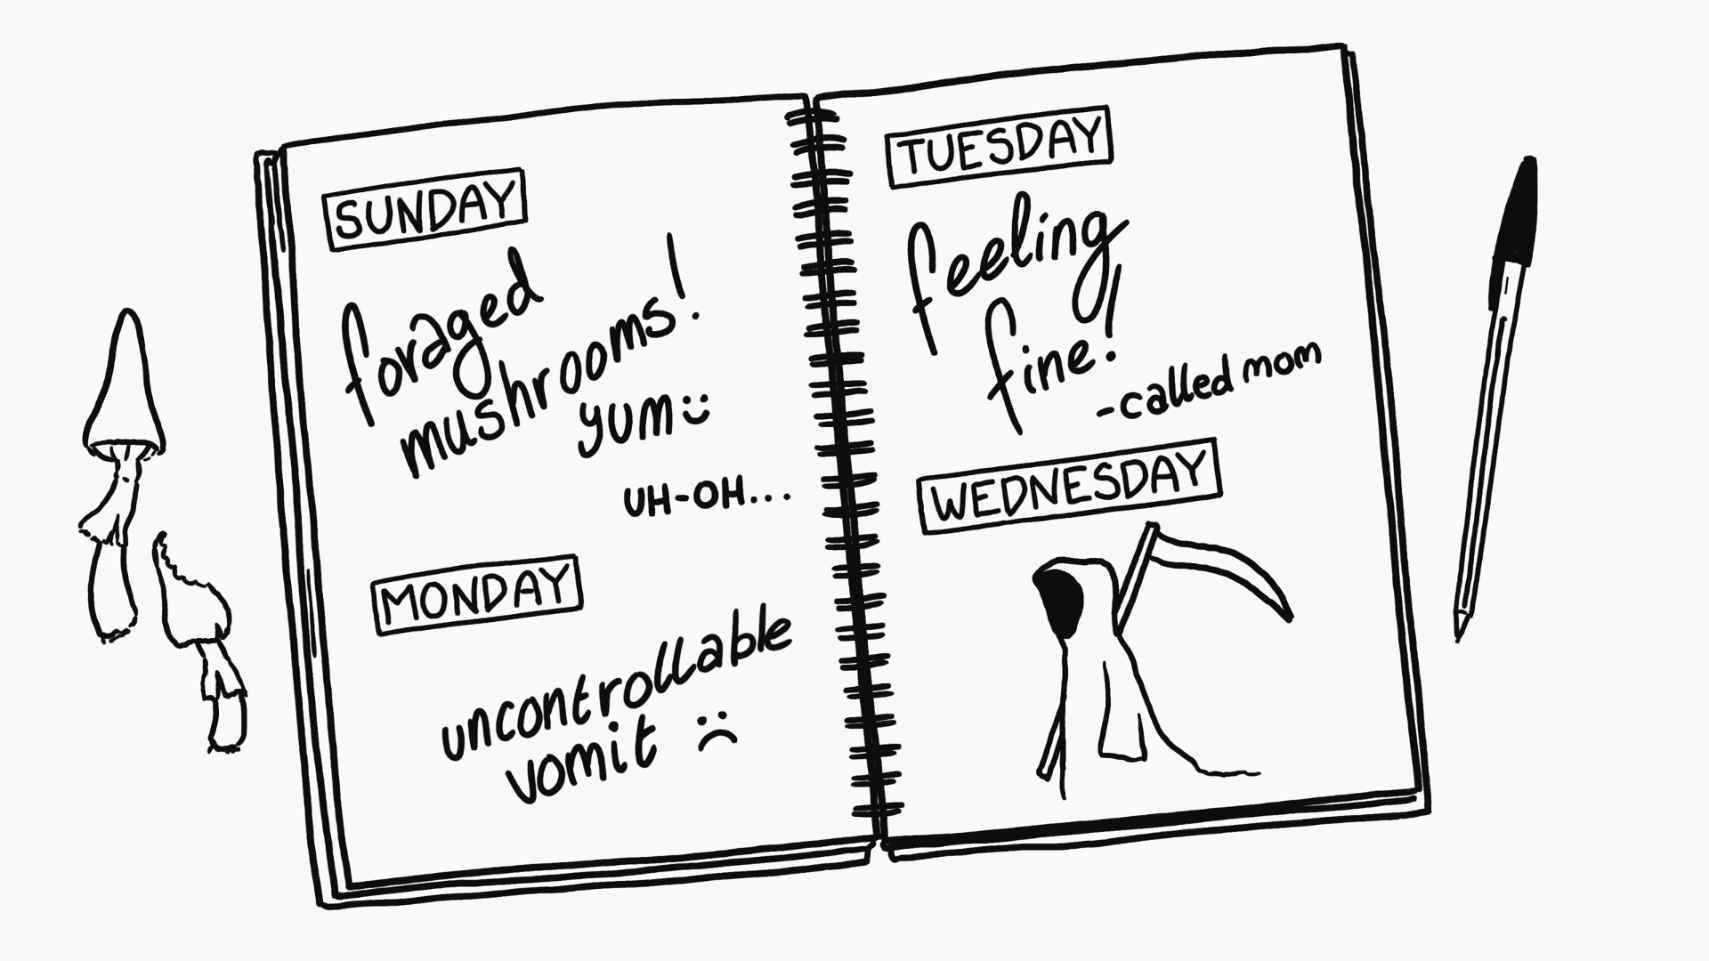 SUNDAY
foraged
mushrooms!
yum
UH-OH...
MONDAY
uncontrollable
vomit
TUESDAY
feeling
fine!
-called mom
WEDNESDAY